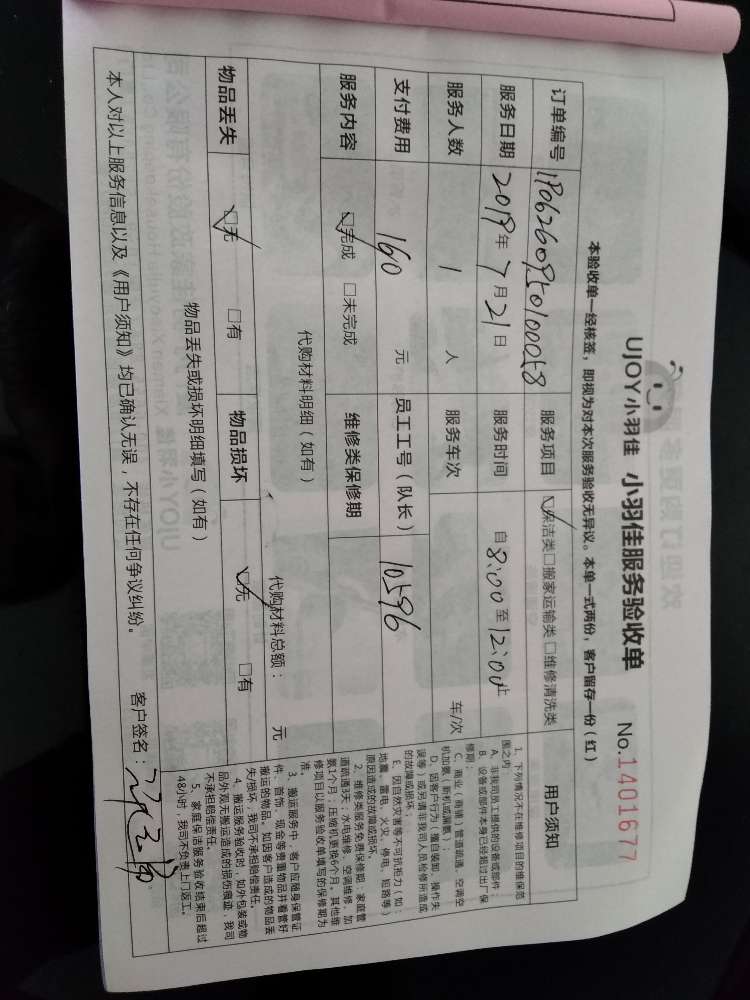 UJOY小羽佳 小羽佳服务验收单 No.1401677
本验收单一经核签，即视为对本次服务验收无异议。本单一式两份，客户留存一份（红）
订单编号 1906260950100058 服务项目 ☑保洁类□搬家运输类□维修清洗类
服务日期 2019年7月21日 服务时间 自8:00至12:00止
服务人数 1 人 服务车次 车/次
支付费用 160 元 员工工号（队长） 10596
服务内容 ☑完成 □未完成 维修类保修期
代购材料明细（如有） 代购材料总额： 元
物品丢失 ☑无 □有 物品损坏 ☑无 □有
物品丢失或损坏明细填写（如有）
本人对以上服务信息以及《用户须知》均已确认无误，不存在任何争议纠纷。 客户签名：
用户须知
1、下列情况不在维修项目的维保范
围之内：
A、非我司员工提供的设备或部件；
B、设备或部件本身已经超过出厂保
修期；
C、商业（商铺）管道疏通、空调空
机加氨（新机或漏氨）；
D、因客户行为（擅自装卸、操作失
误等）或另请非我司人员检修所造成
的故障或损坏；
E、因自然灾害等不可抗拒力（如：
地震、雷电、火灾、停电、短路等）
原因造成的故障或损坏。
2、维修类服务免费保修期：家庭管
道疏通3天；水电维修、空调维修、加
氨1个月；压缩机更换6个月，其他维
修项目以服务验收单填写的保修期为
准。
3、搬运服务中，客户应随身保管证
件、首饰、现金等贵重物品并看管好
搬运的物品。如因客户造成的物品丢
失/损坏，我司不承担赔偿责任。
4、搬运服务验收时，如外包装或物
品外观无搬运造成的损伤痕迹，我司
不承担赔偿责任。
5、家庭保洁服务验收结束后超过
48小时，我司不负责上门返工。